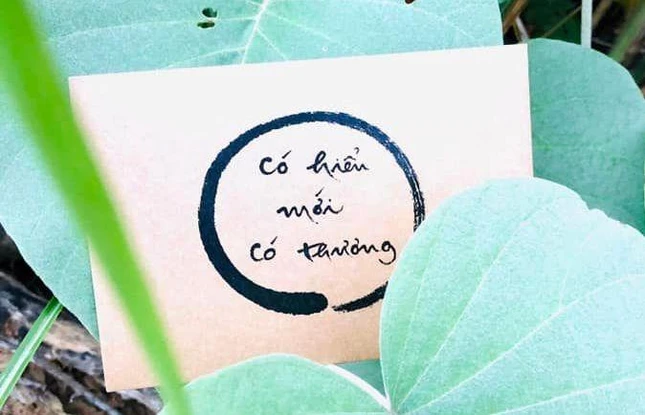 Có hiểu
mới
Có thương